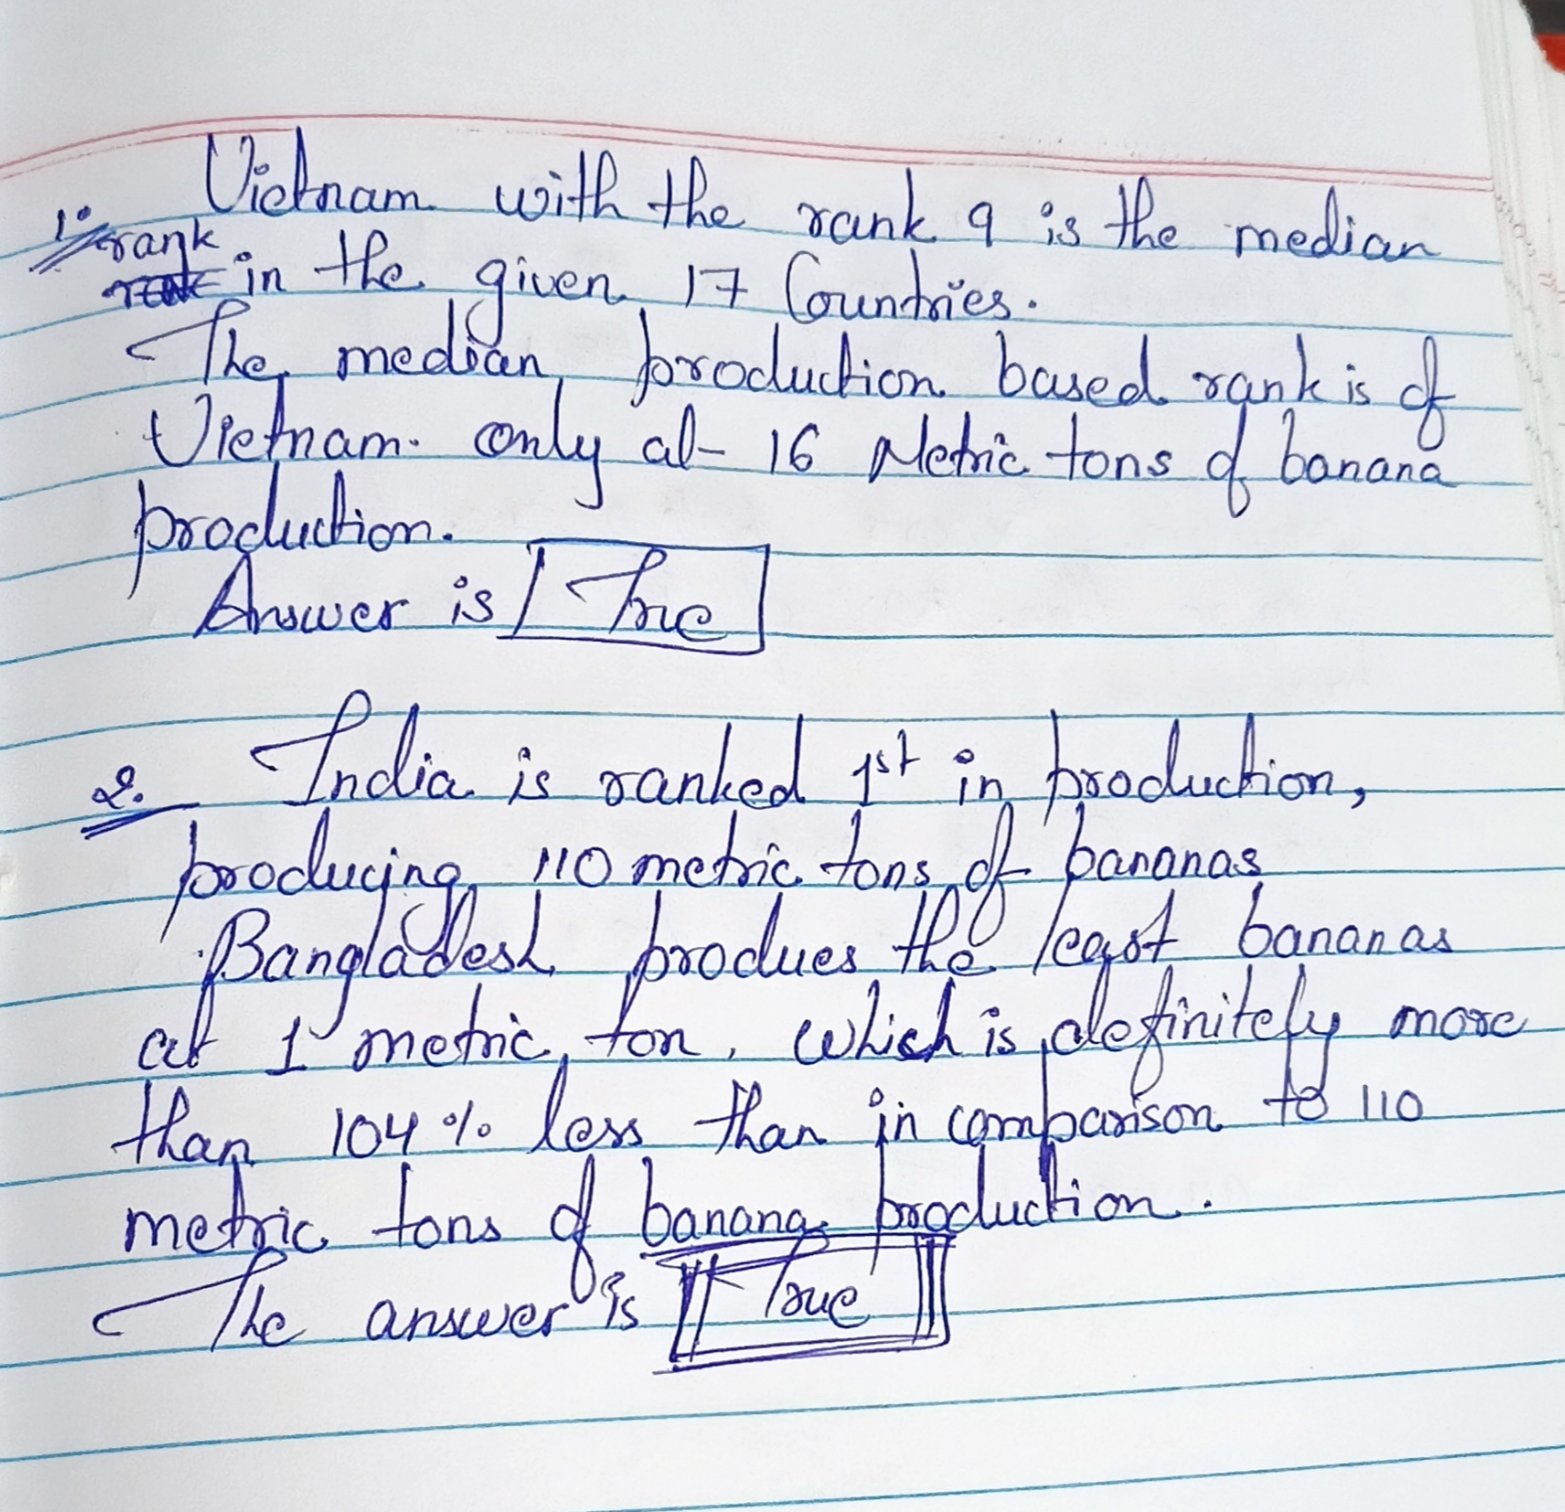 1. Vietnam with the rank 9 is the median
rank in the given 17 Countries.
The median production based rank is of
Vietnam. only at 16 Metric tons of banana
production.
Answer is True
2. India is ranked 1st in production,
producing 110 metric tons of bananas
Bangladesh produes the least bananas
at 1 metric ton. which is definitely more
than 104% less than in comparison to 110
metric tons of banana production.
The answer is True